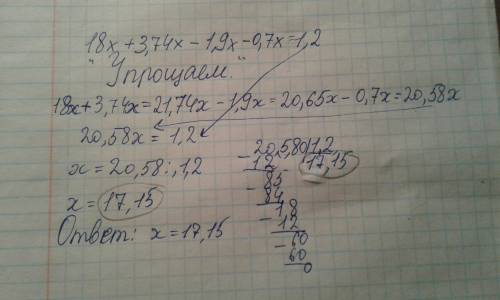 18x+3,74x-1,9x-0,7x=1,2
"Упрощаем."
18x+3,74x=21,74x-1,9x=20,65x-0,7x=20,58x
20,58x=1,2
x=20,58:1,2
x=17,15
Ответ: x=17,15
20,580|1,2
-12 17,15
85
-84
18
-12
60
-60
0